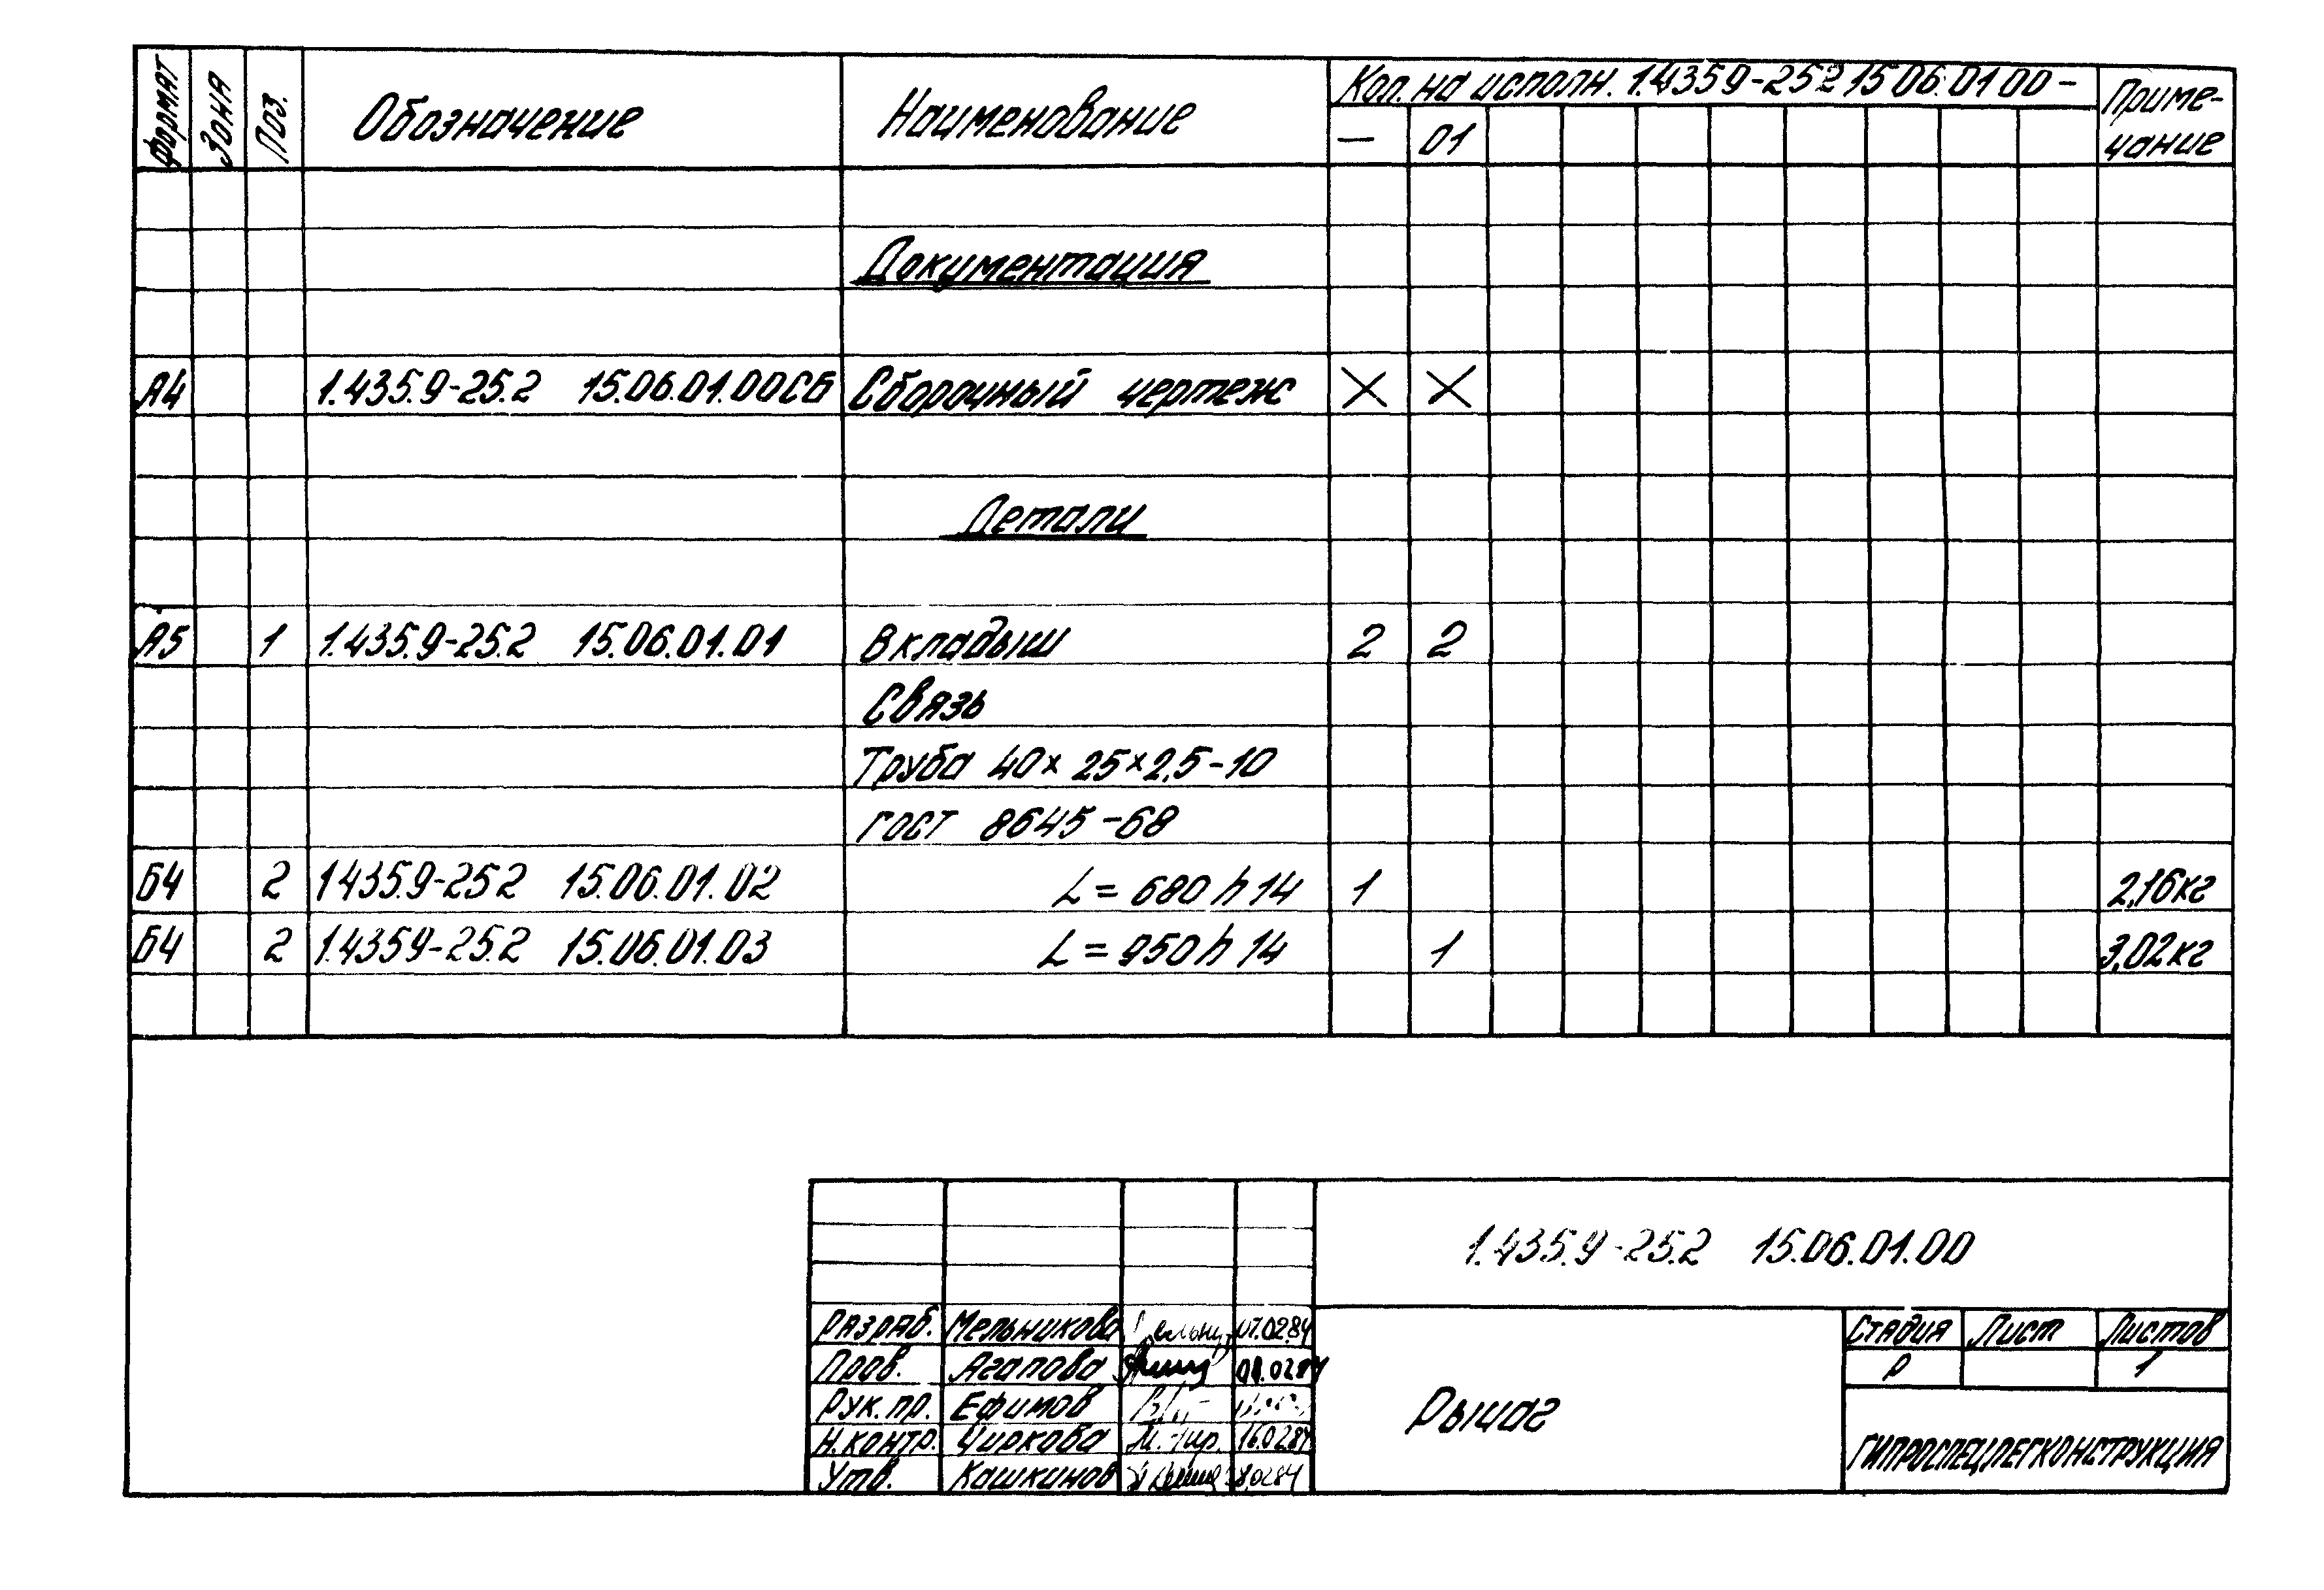 Формат Зона Поз. Обозначение Наименование Кол. на исполн. 1.4359-252 15 06.01 00 - Приме-
— 01 чание
Документация
А4 1.435.9-25.2 15.06.01.00СБ Сборочный чертеж X X
Детали
А5 1 1.435.9-25.2 15.06.01.01 Вкладыш 2 2
Связь
Труба 40х 25х2,5-10
ГОСТ 8645-68
Б4 2 1435.9-252 15.06.01.02 L = 680 h 14 1 2,16кг
Б4 2 1.4359-25.2 15.06.01.03 L = 950 h 14 1 3,02кг
1.435.9-25.2 15.06.01.00
Разраб. Мельникова 07.02.84
Пров. Агапова 02.84
Рук. пр. Ефимов
Н. контр. Чиркова 16.02.84
Утв. Кашкинов 02.84
Рычаг
Стадия Лист Листов
Р 1
ГИПРОСПЕЦЛЕГКОНСТРУКЦИЯ